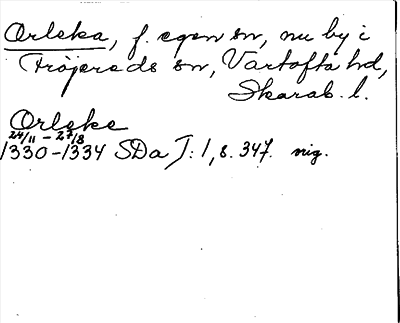 Orleka, f. egen sn, nu by i
Fröjereds sn, Vartofta hd,
Skarab. l.
Orleke
24/11 – 27/8
1330–1334 SDa I: 1, s. 347. nig.